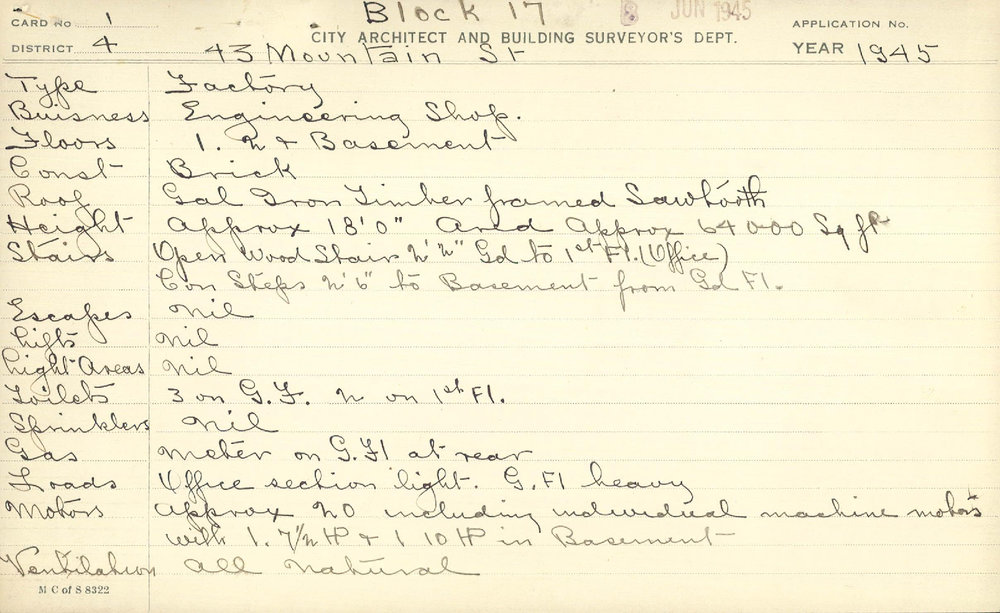 CARD No 1 Block 17 8 JUN 1945 APPLICATION No.
DISTRICT 4 CITY ARCHITECT AND BUILDING SURVEYOR'S DEPT. YEAR 1945
43 Mountain St
Type Factory
Buisness Engineering Shop.
Floors 1. 2 & Basement
Const Brick
Roof Gal Iron Timber framed Sawtooth
Height Approx 18'0" Area Approx 64000 Sq ft
Stairs Open Wood Stair 2'2" Gd to 1st Fl. (Office)
Con Steps 2'6" to Basement from Gd Fl.
Escapes Nil
Lifts Nil
Light Areas Nil
Toilets 3 on G.F. 2 on 1st Fl.
Sprinklers Nil
Gas Meter on G.Fl at rear
Loads Office section light. G.Fl heavy
Motors Approx 20 including individual machine motors
with 1. 7½ HP & 1 10 HP in Basement
Ventilation All Natural
M C of S 8322